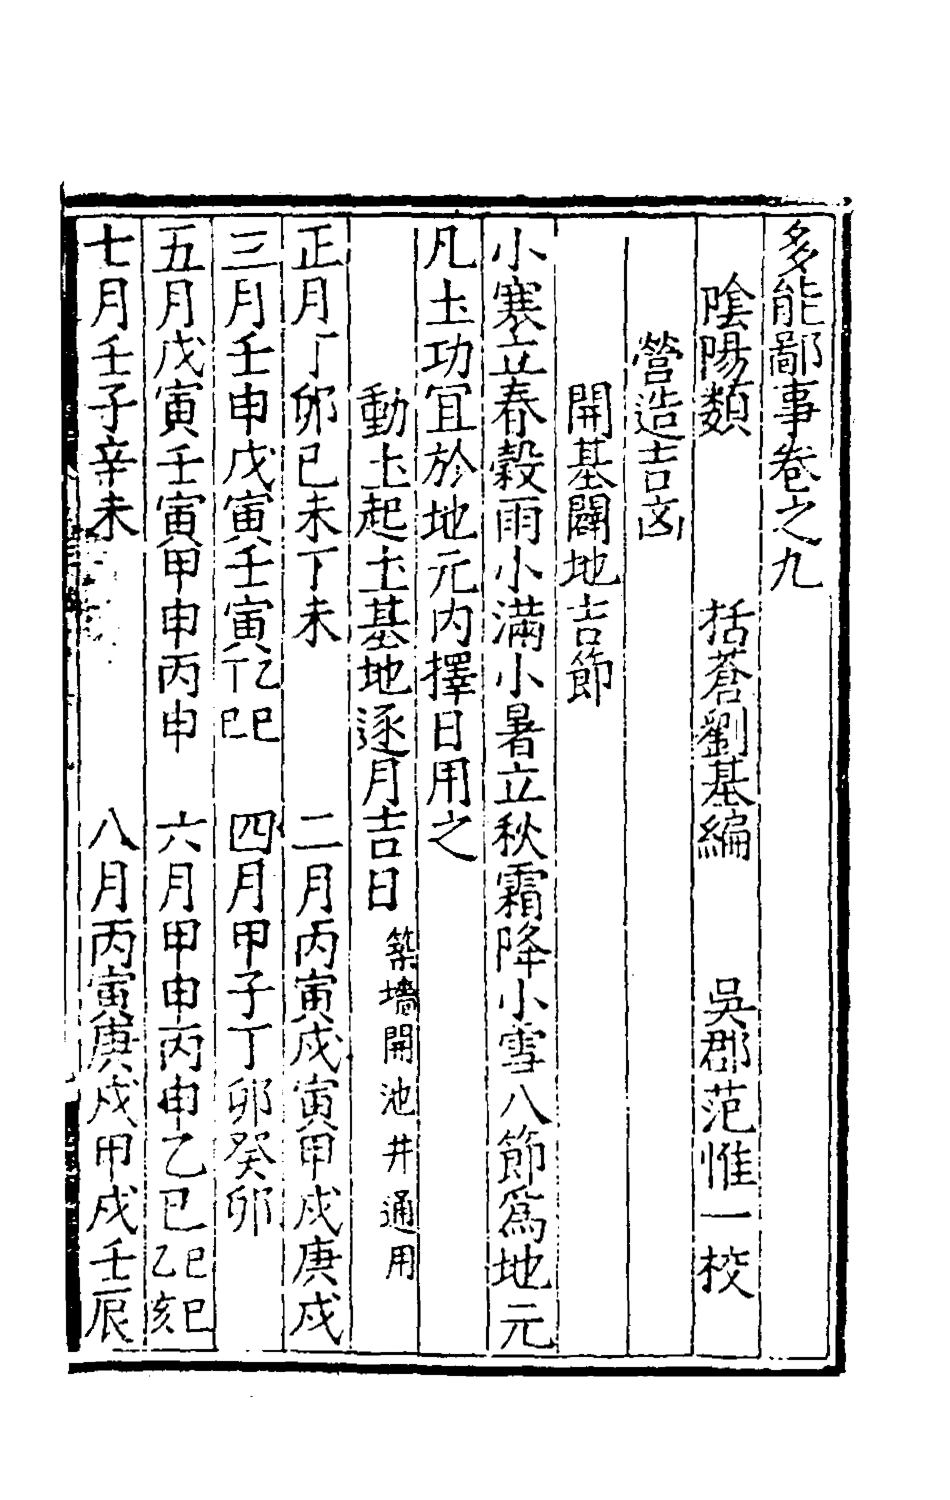 多能鄙事卷之九
陰陽類　括蒼劉基編　吳郡范惟一校
營造吉凶
開基闢地吉節
小寒立春穀雨小滿小暑立秋霜降小雪八節爲地元
凡土功宜於地元內擇日用之
動土起土基地逐月吉日 築墻開池井通用
正月丁卯己未丁未　二月丙寅戊寅甲戌庚戌
三月壬申戊寅壬寅乙巳丁巳　四月甲子丁卯癸卯
五月戊寅壬寅甲申丙申　六月甲申丙申乙巳己巳乙亥
七月壬子辛未　八月丙寅庚戌甲戌壬辰